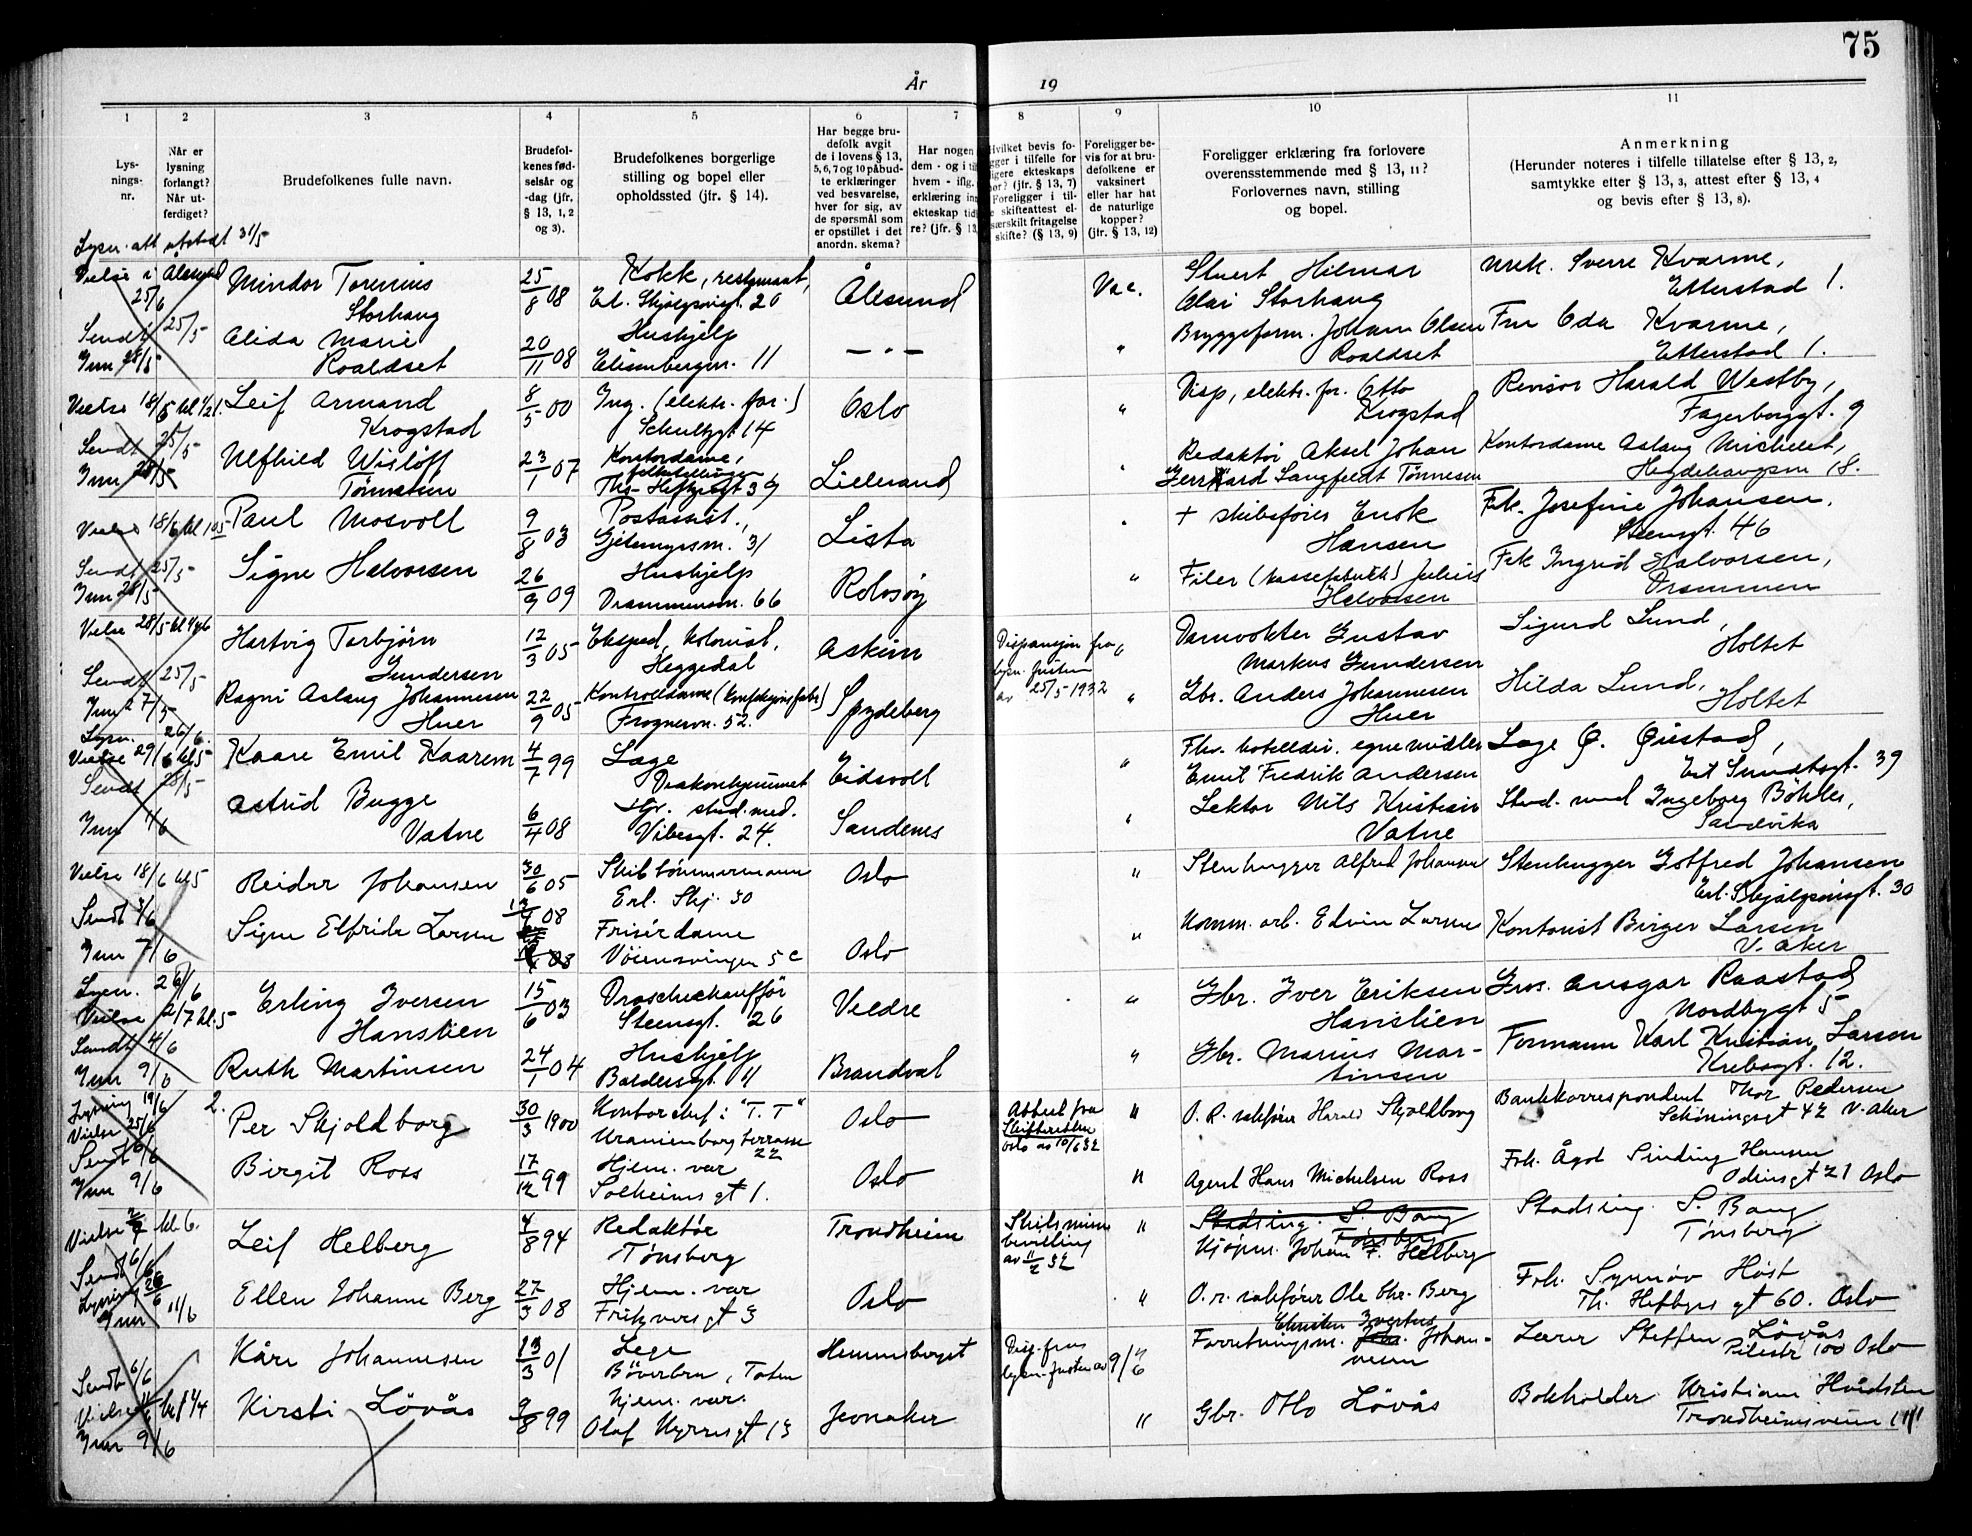 75
År 19
1 2 3 4 5 6 7 8 9 10 11
Lys-
nings-
nr.
Når er
lysning
forlangt?
Når ut-
ferdiget?
Brudefolkenes fulle navn.
Brudefol-
kenes fød-
selsår og
-dag (jfr.
§ 13, 1, 2
og 3).
Brudefolkenes borgerlige
stilling og bopel eller
opholdssted (jfr. § 14).
Har begge bru-
defolk avgit
de i lovens § 13,
5, 6, 7 og 10 påbud-
te erklæringer
ved besvarelse,
hver for sig, av
de spørsmål som
er opstillet i det
anordn. skema?
Har nogen
dem - og i ti
hvem - iflg.
erklæring in
ekteskap tid
re? (jfr. § 13,
Hvilket bevis fo-
gger i tilfelle for
ligere ekteskaps
hør? (jfr. § 13, 7)
Foreligger i til-
e skifteattest el-
særskilt fritagelse
skifte? (§ 13, 9)
Foreligger be-
vis for at bru-
defolkene er
vaksinert
eller har hat
de naturlige
kopper?
(jfr. § 13, 12)
Foreligger erklæring fra forlovere
overensstemmende med § 13, 11?
Forlovernes navn, stilling
og bopel.
Anmerkning
(Herunder noteres i tilfelle tillatelse efter § 13, 2,
samtykke efter § 13, 3, attest efter § 13, 4
og bevis efter § 13, 8).
Lysn. att utstedt 31/5
Vielse i Ålesund
25/6
Sendt 25/5
Inn 28/5
Mindor Torenius
Storhaug
25/8 08
Kokk, restaurant,
Erl. Skjalgssøngt. 20
Ålesund
Vac.
Stuert Hilmar
Olai Storhaug
Mek. Sverre Kvarme,
Etterstad 1.
Alida Marie
Roaldset
20/11 08
Hushjelp
Elisenbergvn. 11
— " —
"
Bryggeform. Johan Olsen
Roaldset
Fru Oda Kvarme,
Etterstad 1.
Vielse 18/6 kl 1/21.
Sendt 25/5
Inn 28/5
Leif Armand
Krogstad
8/5 00
Ing. (elektr. for.)
Schultzgt 14
Oslo
"
Disp, elektr. for. Otto
Krogstad
Revisor Harald Westby,
Fagerborggt. 9
Ulfhild Wisløff
Tønnesen
23/1 07
Kontordame,
folketellingen
Ths. Heftyesgt 39
Lillesand
"
Redaktør Aksel Johan
Gerhard Langfeldt Tønnesen
Kontordame Aslaug Michelet,
Hegdehaugsvn 18.
Vielse 18/6 kl 105
Sendt 25/5
Inn 28/5
Paul Mosvoll
9/8 03
Postassist.,
Gjetemyrsvn. 31
Lista
"
+ skibsfører Enok
Hansen
Frk. Josefine Johansen,
Steensgt. 46
Signe Halvorsen
26/9 09
Hushjelp
Drammensvn. 66
Rolvsøy
"
Filer (kassefabrikk) Julius
Halvorsen
Frk Ingrid Halvorsen,
Drammen
Vielse 28/5 kl 4 3/4
Sendt 25/5
Inn 27/5
Hartvig Torbjørn
Gundersen
12/3 05
Eksped, kolonial,
Heggedal
Askim
Dispensasjon fra
lysn. fristen
av 25/5-1932
"
Damvokter Gustav
Markus Gundersen
Sigurd Lund,
Holtet
Ragni Aslaug Johannesen
Huer
22/9 05
Kontrolldame (konfeksjonsfabr)
Frognervn. 52.
Spydeberg
"
Gbr. Anders Johannesen
Huer
Hilda Lund,
Holtet
Lysn. 26/6.
Vielse 29/6 kl 5
Sendt 28/5
Inn 1/6
Kaare Emil Kaarem
4/7 99
Læge
Diakonhjemmet
Eidsvoll
"
Fhv. hotelldir. egne midler
Emil Fredrik Andersen
Læge Ø. Øiestad,
Eil Sundtsgt. 39
Astrid Bugge
Vatne
6/4 08
Hjv. stud. med.
Vibesgt. 24.
Sandenes
"
Lektor Nils Kristian
Vatne
Stud. med Ingeborg Böhler,
Sandvika
Vielse 18/6 kl 5
Sendt 3/6
Inn 7/6
Reidar Johansen
30/6 05
Skibstømmermann
Erl. Skj. 30
Oslo
"
Stenhugger Alfred Johansen
Stenhugger Gotfred Johansen
Erl. Skjalgssøngt. 30
Signe Elfrida Larsen
08
Frisørdame
Vöiensvingen 5 c
Oslo
"
Komm. arb. Edvin Larsen
Kontorist Birger Larsen
V. Aker
Lysn. 26/6
Vielse 2/7 kl. 5
Sendt 4/6
Inn 9/6
Erling Iversen
Hanstien
15/6 03
Droschechaufför
Steensgt. 26
Veldre
"
Gbr. Iver Eriksen
Hanstien
Gros. Ansgar Raastad
Nordbygt 5
Ruth Martinsen
24/1 04
Hushjelp
Baldersgt. 11
Brandval
"
Gbr. Marius Mar-
tinsen
Formann Karl Kristian Larson
Krebsgt. 12.
Lysning 19/6
Vielse 25/6
Sendt 6/6
Inn 9/6
2.
Per Skjoldborg
30/3 1900
Kontorchef i "T. T"
Uranienborg terrasse
22
Oslo
Attest fra
Skifteretten
Oslo av 10/6 32
"
O. R. sakfører Harald Skjoldborg
Bankkorrespondent Thor Pedersen
Schöningsgt 42 V. Aker
Birgit Ross
17/12 99
Hjem. vær
Solheimsgt 1.
Oslo
"
Agent Hans Michelsen Ross
Frk. Ågot Sinding Hansen
Odinsgt 21 Oslo
Vielse 2/7 kl 6.
Sendt 6/6
Lysning 26/6
Inn 11/6
Leif Helberg
4/8 94
Redaktør
Tønsberg
Trondheim
Skilsmisse
bevilling
av 11/2 32
"
Stadsing. S. Bang
Tønsberg
Kjøpm. Johan F. Helberg
Stadsing. S. Bang
Tønsberg
Ellen Johanne Berg
27/3 08
Hjem. vær
Fritznersgt 3
Oslo
"
O. r. sakfører Ole Chr. Berg
Frk. Synnøv Høst
Th. Heftyes gt 60. Oslo
Sendt 6/6
Vielse
Inn 9/6
Kåre Johannesen
13/3 01
Lege
Böverbru, Toten
Hemnesberget
Disp. fra
lysn. fristen av 9/6
"
Christen Ivertus
Forretningsm. Johan-
nesen
Lærer Steffen Lövås
Pilestr 100 Oslo
Kirsti Lövås
9/8 99
Hjem. vær.
Olaf Kyrresgt 13
Jevnaker
"
Gbr. Otto Lövås
Bokholder Kristian Hvidsten
Trondheimsveien 111